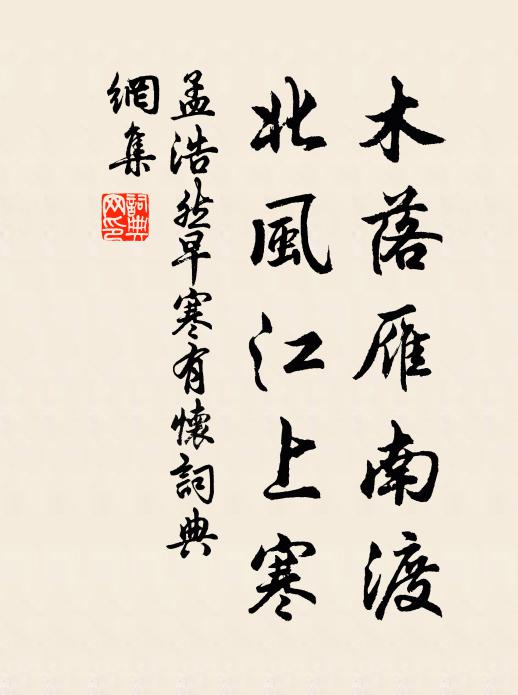 木落雁南渡
北風江上寒
孟浩然早寒有懷詞典
網集
詞典
网印